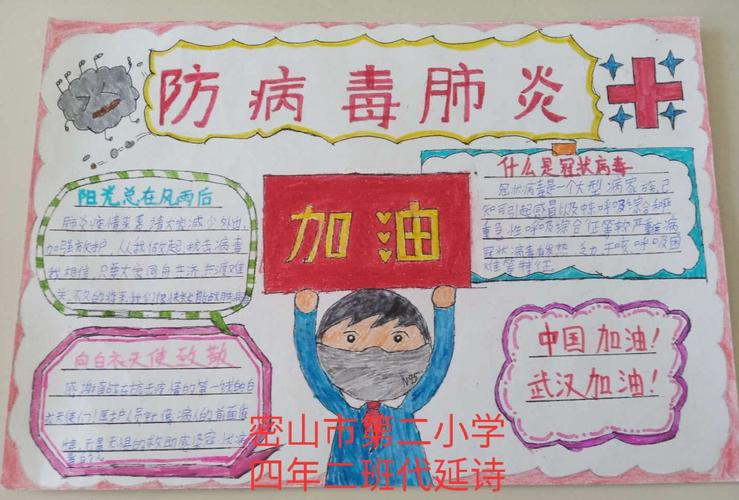 防病毒肺炎
阳光总在风雨后
肺炎疫情来袭请大家减少外出,
加强放护,从我做起,抗击病毒
我相信,只要大家同舟共济共渡难
关,不久的将来,我们很快就能战胜病
加油
什么是冠状病毒
冠状病毒是一个大型病毒家族,已
知可引起感冒以及中呼吸综合征
重急性呼吸综合征等较严重病
冠状病毒有发热、乏力、干咳、呼吸困
难等特征
向白衣天使致敬
感谢奋战在抗击疫情的第一线的白
衣天使们!医护人员
中国加油!
武汉加油!
N95
密山市第二小学
四年二班代延诗